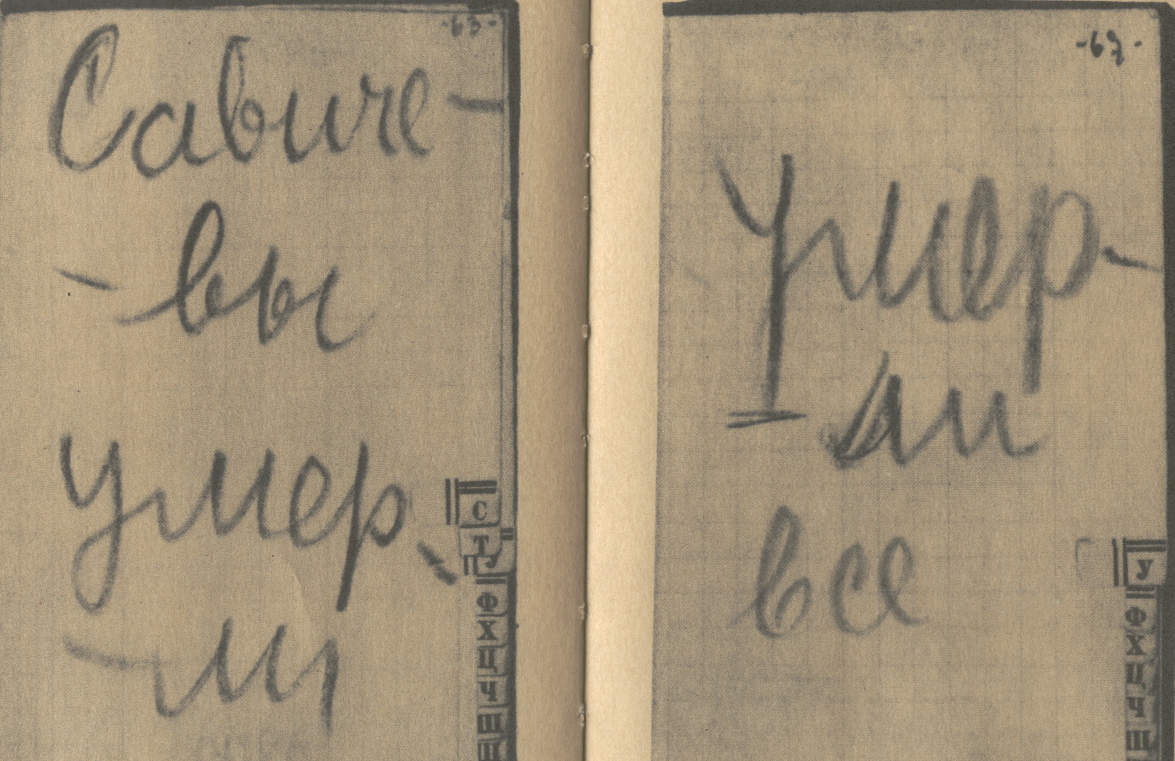 -63-
Савиче-
-вы
умер-
-ли
С
Т
У
Ф
Х
Ц
Ч
Ш
Щ
-67-
Умер-
-ли
все
У
Ф
Х
Ц
Ч
Ш